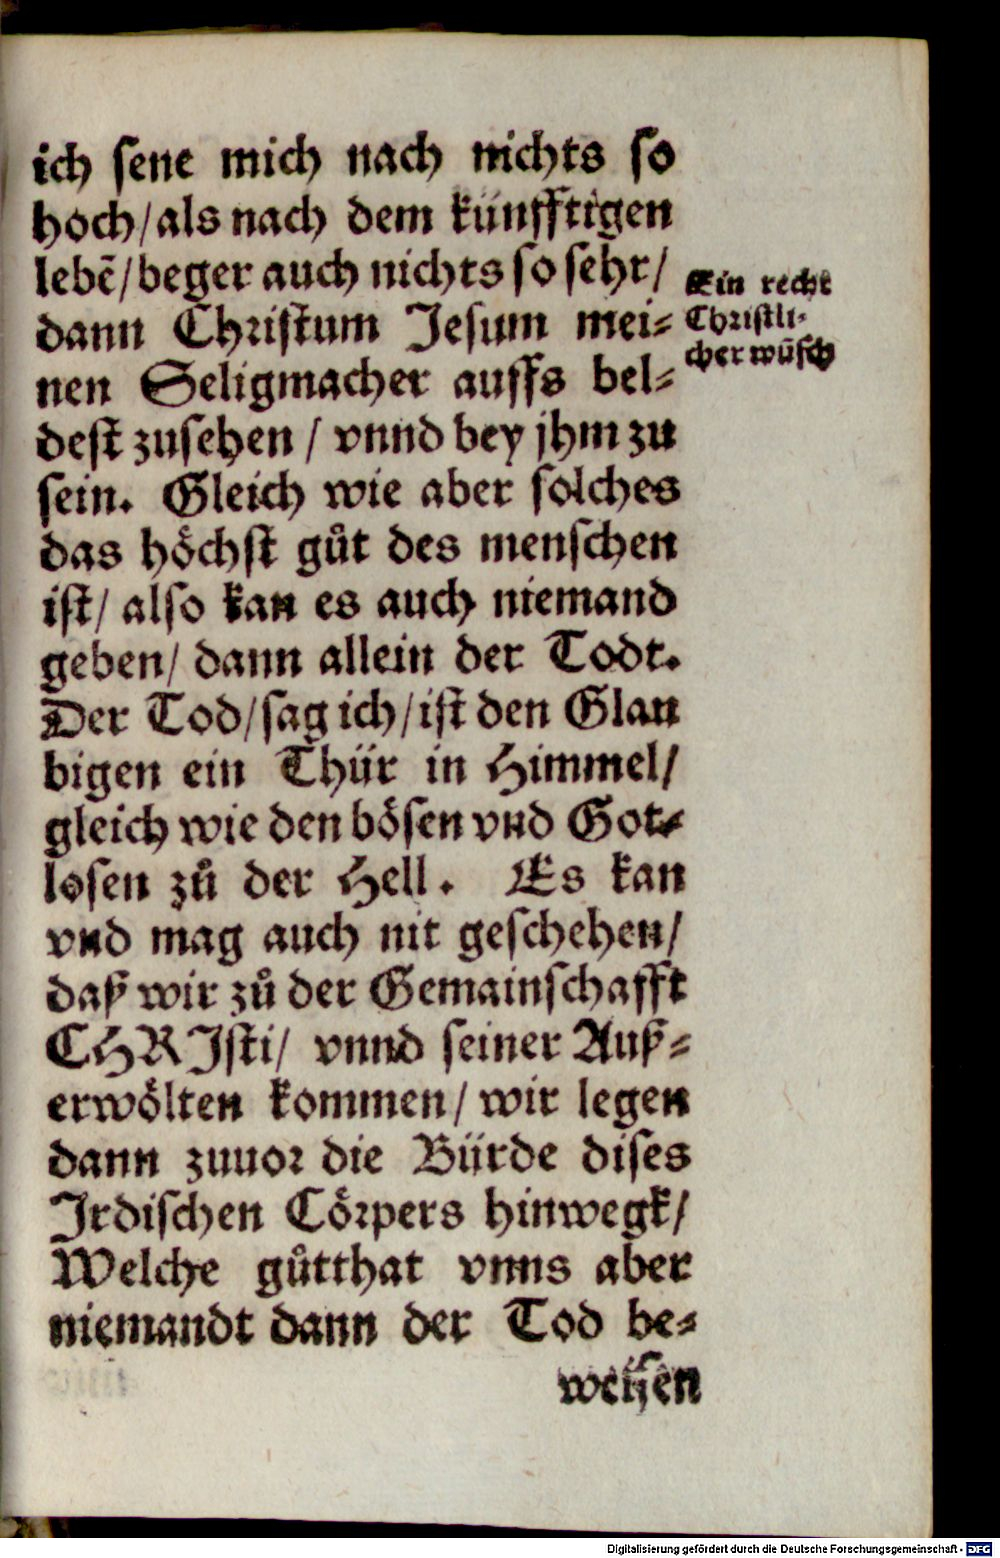 ich sene mich nach nichts so
hoch/als nach dem künfftigen
lebē/beger auch nichts so sehr/
dann Christum Jesum mei⸗
nen Seligmacher auffs bel⸗
dest zusehen / vnnd bey jhm zu
sein. Gleich wie aber solches
das höchst gůt des menschen
ist/ also kan es auch niemand
geben/ dann allein der Todt.
Der Tod/sag ich/ist den Glau
bigen ein Thür in Himmel/
gleich wie den bösen vnd Got⸗
losen zů der Hell. Es kan
vnd mag auch nit geschehen/
daß wir zů der Gemainschafft
CHRIsti/ vnnd seiner Auß⸗
erwölten kommen/ wir legen
dann zuuor die Bürde dises
Irdischen Cörpers hinwegk/
Welche gůtthat vnns aber
niemandt dann der Tod be⸗
weisen
Ein recht
Christli⸗
cher wūsch
Digitalisierung gefördert durch die Deutsche Forschungsgemeinschaft - DFG